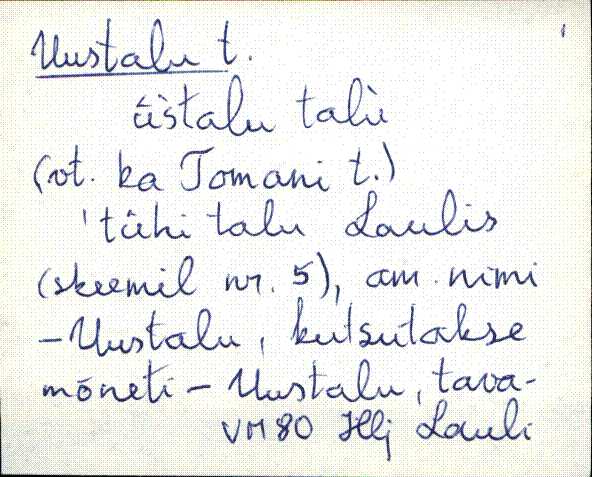 Uustalu t.
ūs̀talu talù
(vt. ka Tomani t.)
'tühi talu Laulis
(skeemil nr. 5), am. nimi
- Uustalu, kutsutakse
mõneti - Uustalu, tava-
VM 80 Hlj Lauli